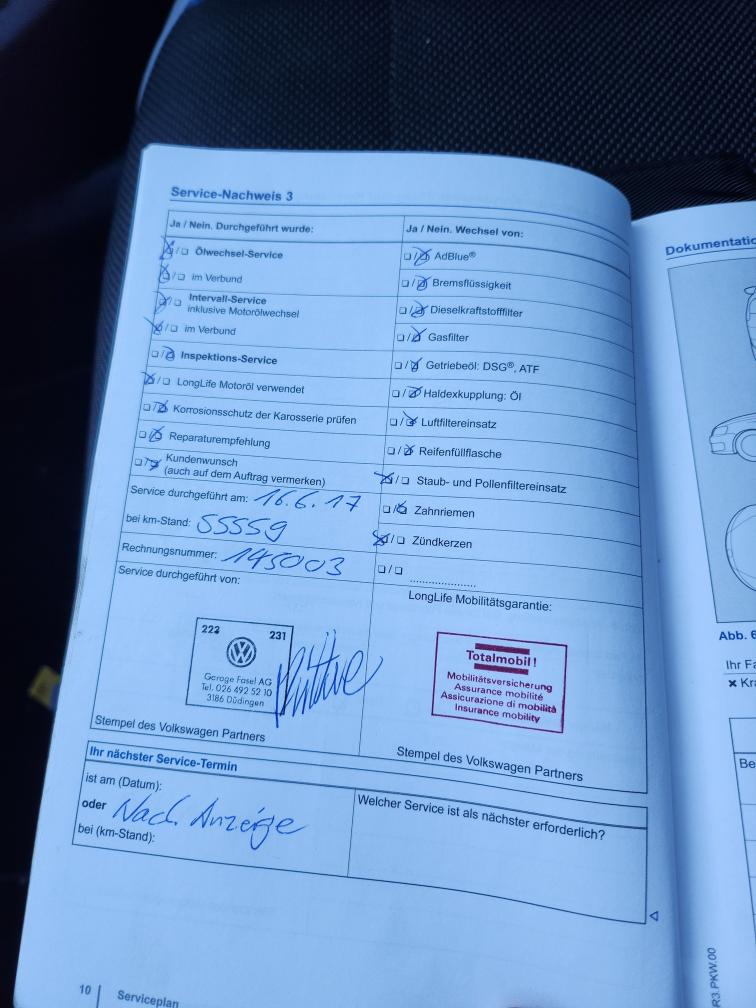 Service-Nachweis 3
Ja / Nein. Durchgeführt wurde:
☒/☐ Ölwechsel-Service
☒/☐ im Verbund
☒/☐ Intervall-Service
inklusive Motorölwechsel
☒/☐ im Verbund
☐/☒ Inspektions-Service
☒/☐ LongLife Motoröl verwendet
☐/☒ Korrosionsschutz der Karosserie prüfen
☐/☒ Reparaturempfehlung
☐/☒ Kundenwunsch
(auch auf dem Auftrag vermerken)
Service durchgeführt am: 16.6.17
bei km-Stand: 55559
Rechnungsnummer: 145003
Service durchgeführt von:
222 231
Garage Fasel AG
Tel. 026 492 52 10
3186 Düdingen
Stempel des Volkswagen Partners
Ja / Nein. Wechsel von:
☐/☒ AdBlue®
☐/☒ Bremsflüssigkeit
☐/☒ Dieselkraftstofffilter
☐/☒ Gasfilter
☐/☒ Getriebeöl: DSG®, ATF
☐/☒ Haldexkupplung: Öl
☐/☒ Luftfiltereinsatz
☐/☒ Reifenfüllflasche
☒/☐ Staub- und Pollenfiltereinsatz
☐/☒ Zahnriemen
☒/☐ Zündkerzen
☐/☐ ......................
LongLife Mobilitätsgarantie:
Totalmobil!
Mobilitätsversicherung
Assurance mobilité
Assicurazione di mobilità
Insurance mobility
Stempel des Volkswagen Partners
Ihr nächster Service-Termin
ist am (Datum):
oder Nach Anzeige
bei (km-Stand):
Welcher Service ist als nächster erforderlich?
10 Serviceplan
Dokumentatio
Abb. 6
Ihr Fa
× Kra
Be
R3.PKW.00